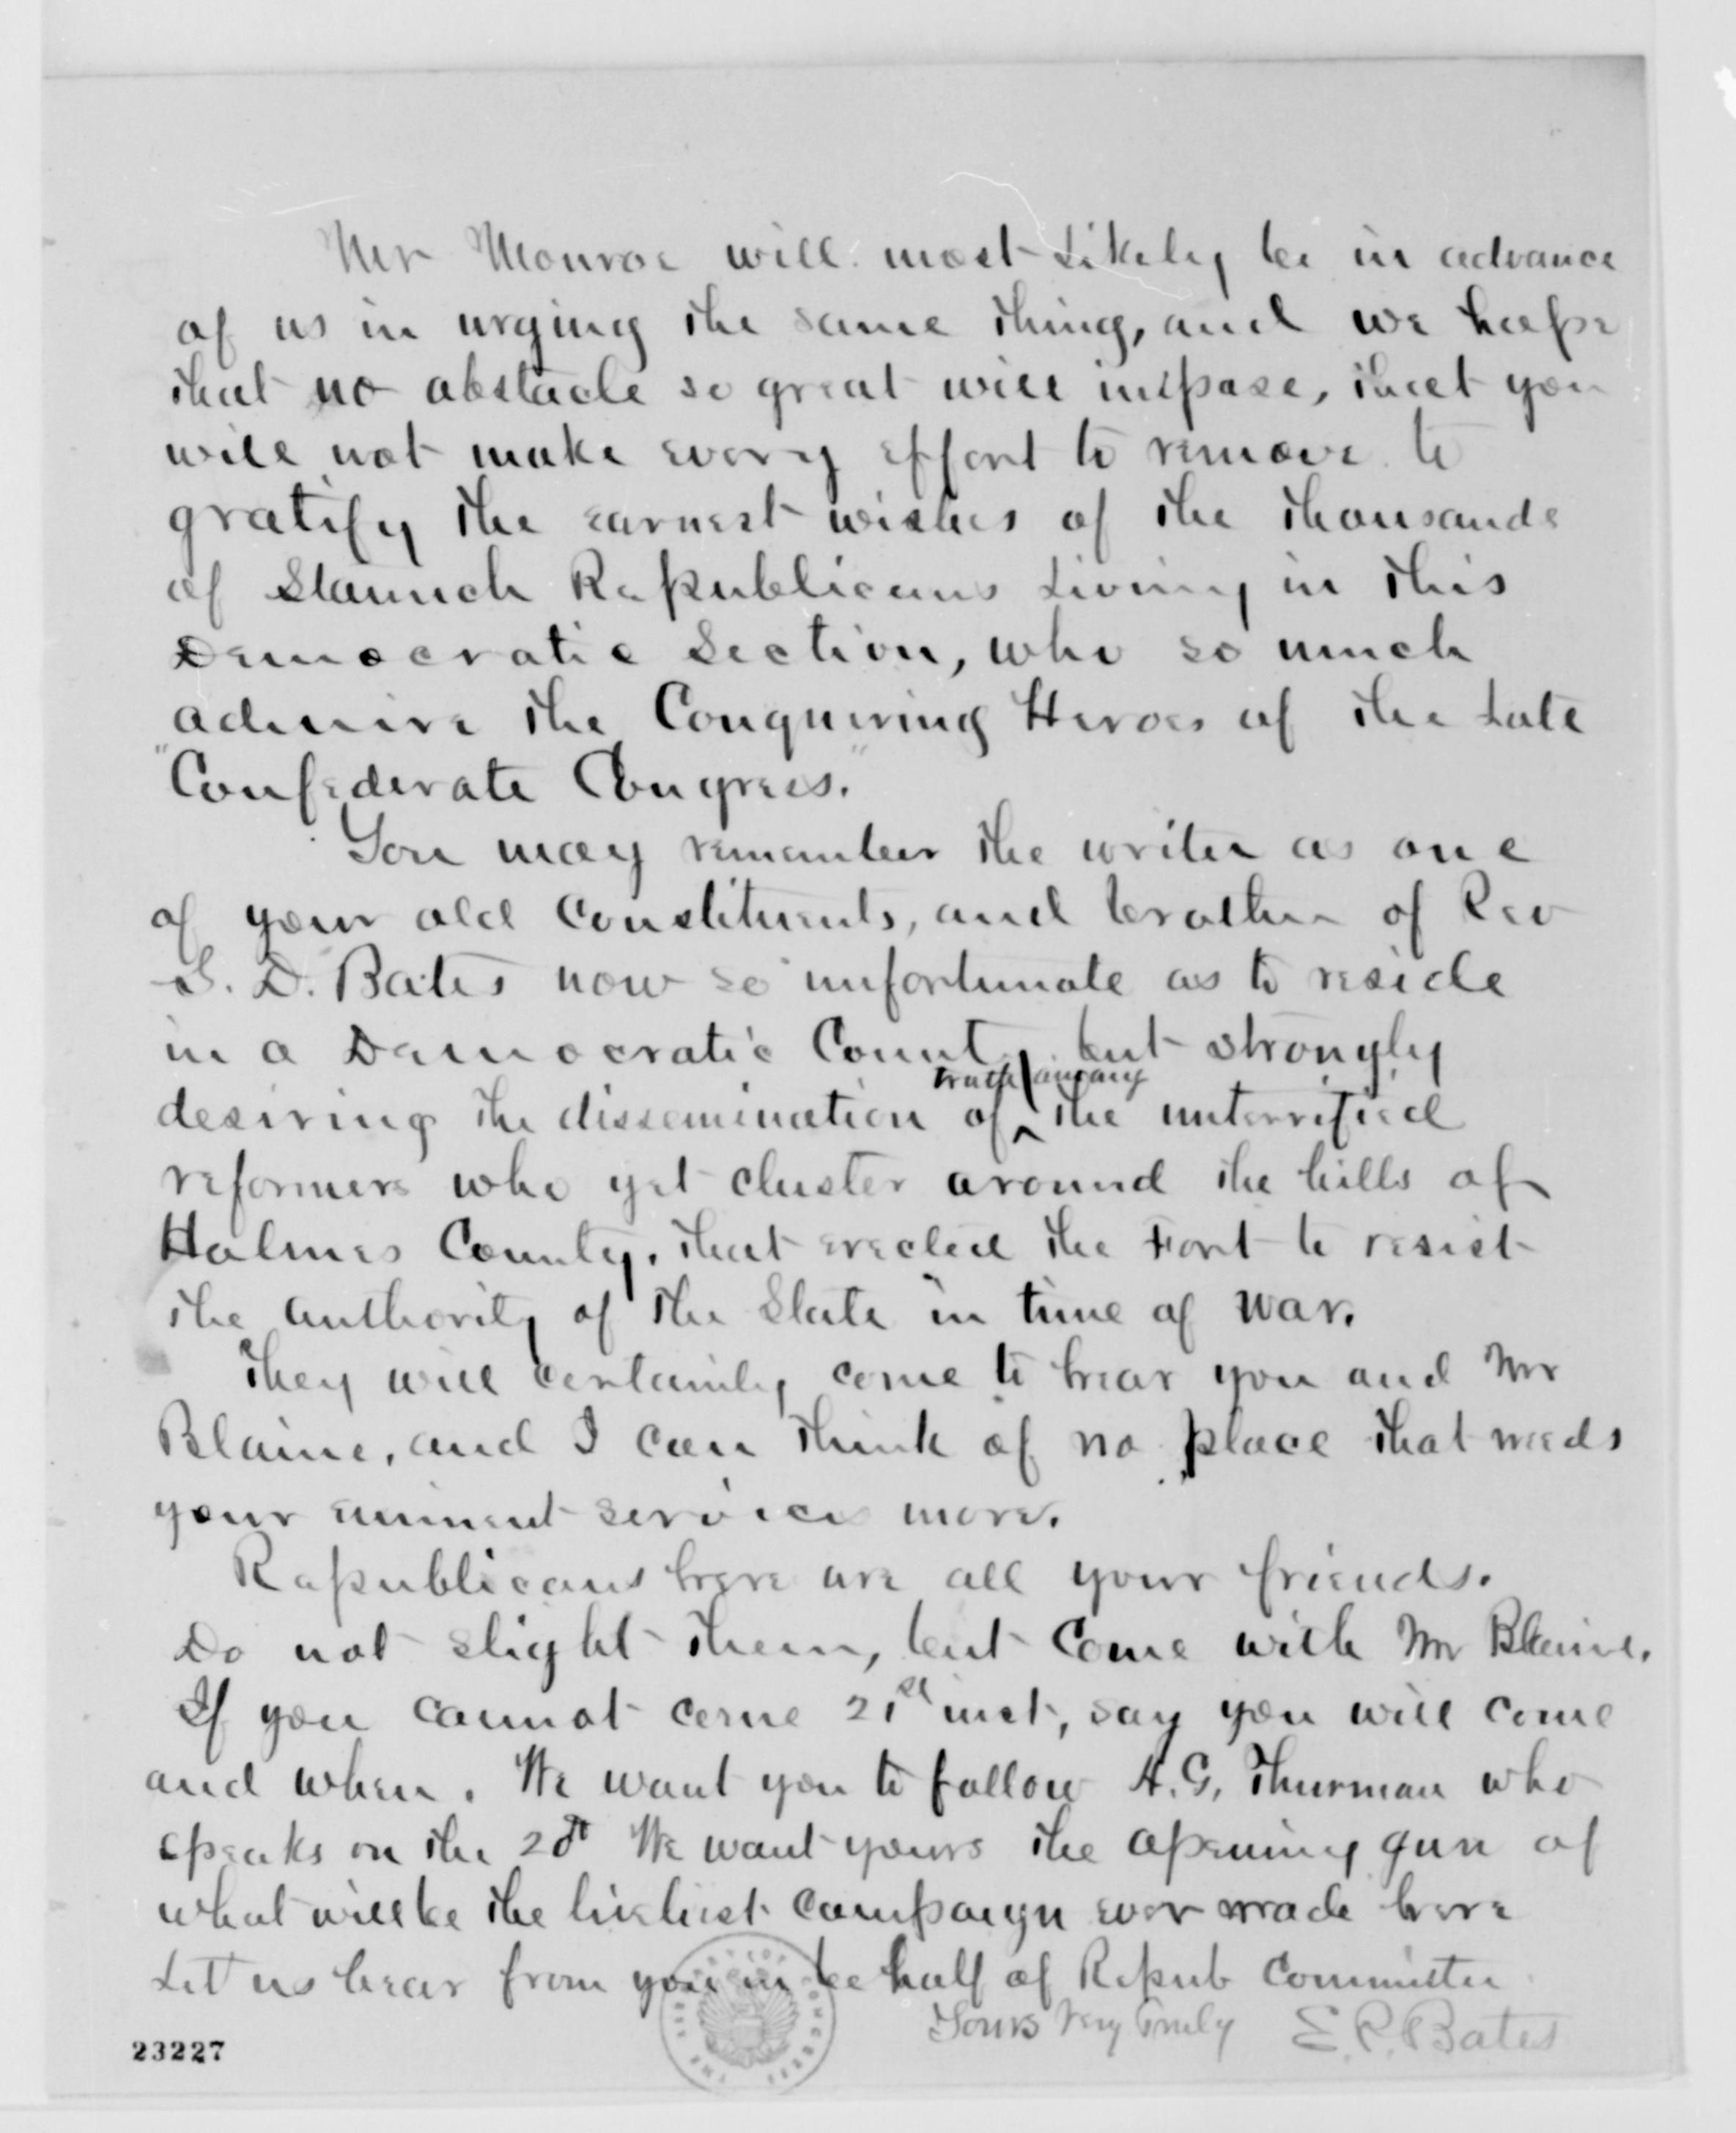 Mr Monroe will most likely be in advance
of us in urging the same thing, and we hope
that no obstacle so great will inspose, that you
will not make every effort to remove to
gratify the earnest wishes of the thousands
of Staunch Republicans Living in this
Democratic Section, who so much
admire the Conquering Heroes of the Late
"Confederate Congress."
You may remember the writer as one
of your old Constituents, and brother of Rev
S. D. Bates now so unfortunate as to reside
in a Democratic County but strongly
truth among
desiring the dissemination of ^ the unterrified
reformers who yet cluster around the hills of
Holmes County, that erected the Fort to resist
the authority of the State in time of war.
They will certainly come to hear you and Mr
Blaine, and I can think of no place that needs
your eminent services more.
Republicans here are all your friends.
Do not slight them, but Come with Mr Blaine.
If you cannot come 21st inst, say you will come
and when. We want you to follow A. G. Thurman who
speaks on the 20th We want yours the opening gun of
what will be the liveliest campaign ever made here
Let us hear from you in behalf of Repub Committee
Yours Very Truly E. P. Bates
23227